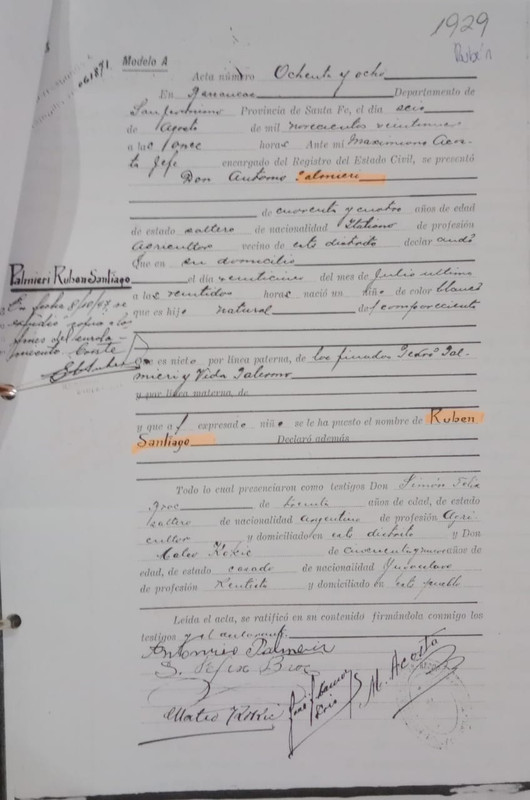 1929
Rubén
061871
Modelo A
Acta número Ochenta y ocho
En Departamento de
San Jeronimo Provincia de Santa Fe, el día seis
de Agosto de mil novecientos veintinueve
a las once horas Ante mi Maximiano Acos-
ta Jefe encargado del Registro del Estado Civil, se presentó
Don Antonio Palmieri
de cuarenta y cuatro años de edad
de estado soltero de nacionalidad Italiano de profesión
Agricultor vecino de este distrito declarando
Que en su domicilio
el día veinticinco del mes de Julio último
a las veintidos horas nació un niño de color blanco
que es hijo natural del compareciente
Palmieri Ruben Santiago
En fecha 8/10/47 se
Que es nieto por línea paterna, de los finados Pedro Pal-
mieri y Vida Palermo
y por línea materna, de
y que al expresado niño se le ha puesto el nombre de Ruben
Santiago Declaró además
Todo lo cual presenciaron como testigos Don Simón Felix
Broc de treinta años de edad, de estado
soltero de nacionalidad argentino de profesión Agri-
cultor y domiciliado en este distrito y Don
Mateo Kokic de cuarenta y nueve años de
edad, de estado casado de nacionalidad Yugoeslavo
de profesión Rentista y domiciliado en este pueblo
Leída el acta, se ratificó en su contenido firmándola conmigo los
testigos y el autorante.
Antonio Palmieri
S. Felix Broc
Mateo Kokic
M. Acosta